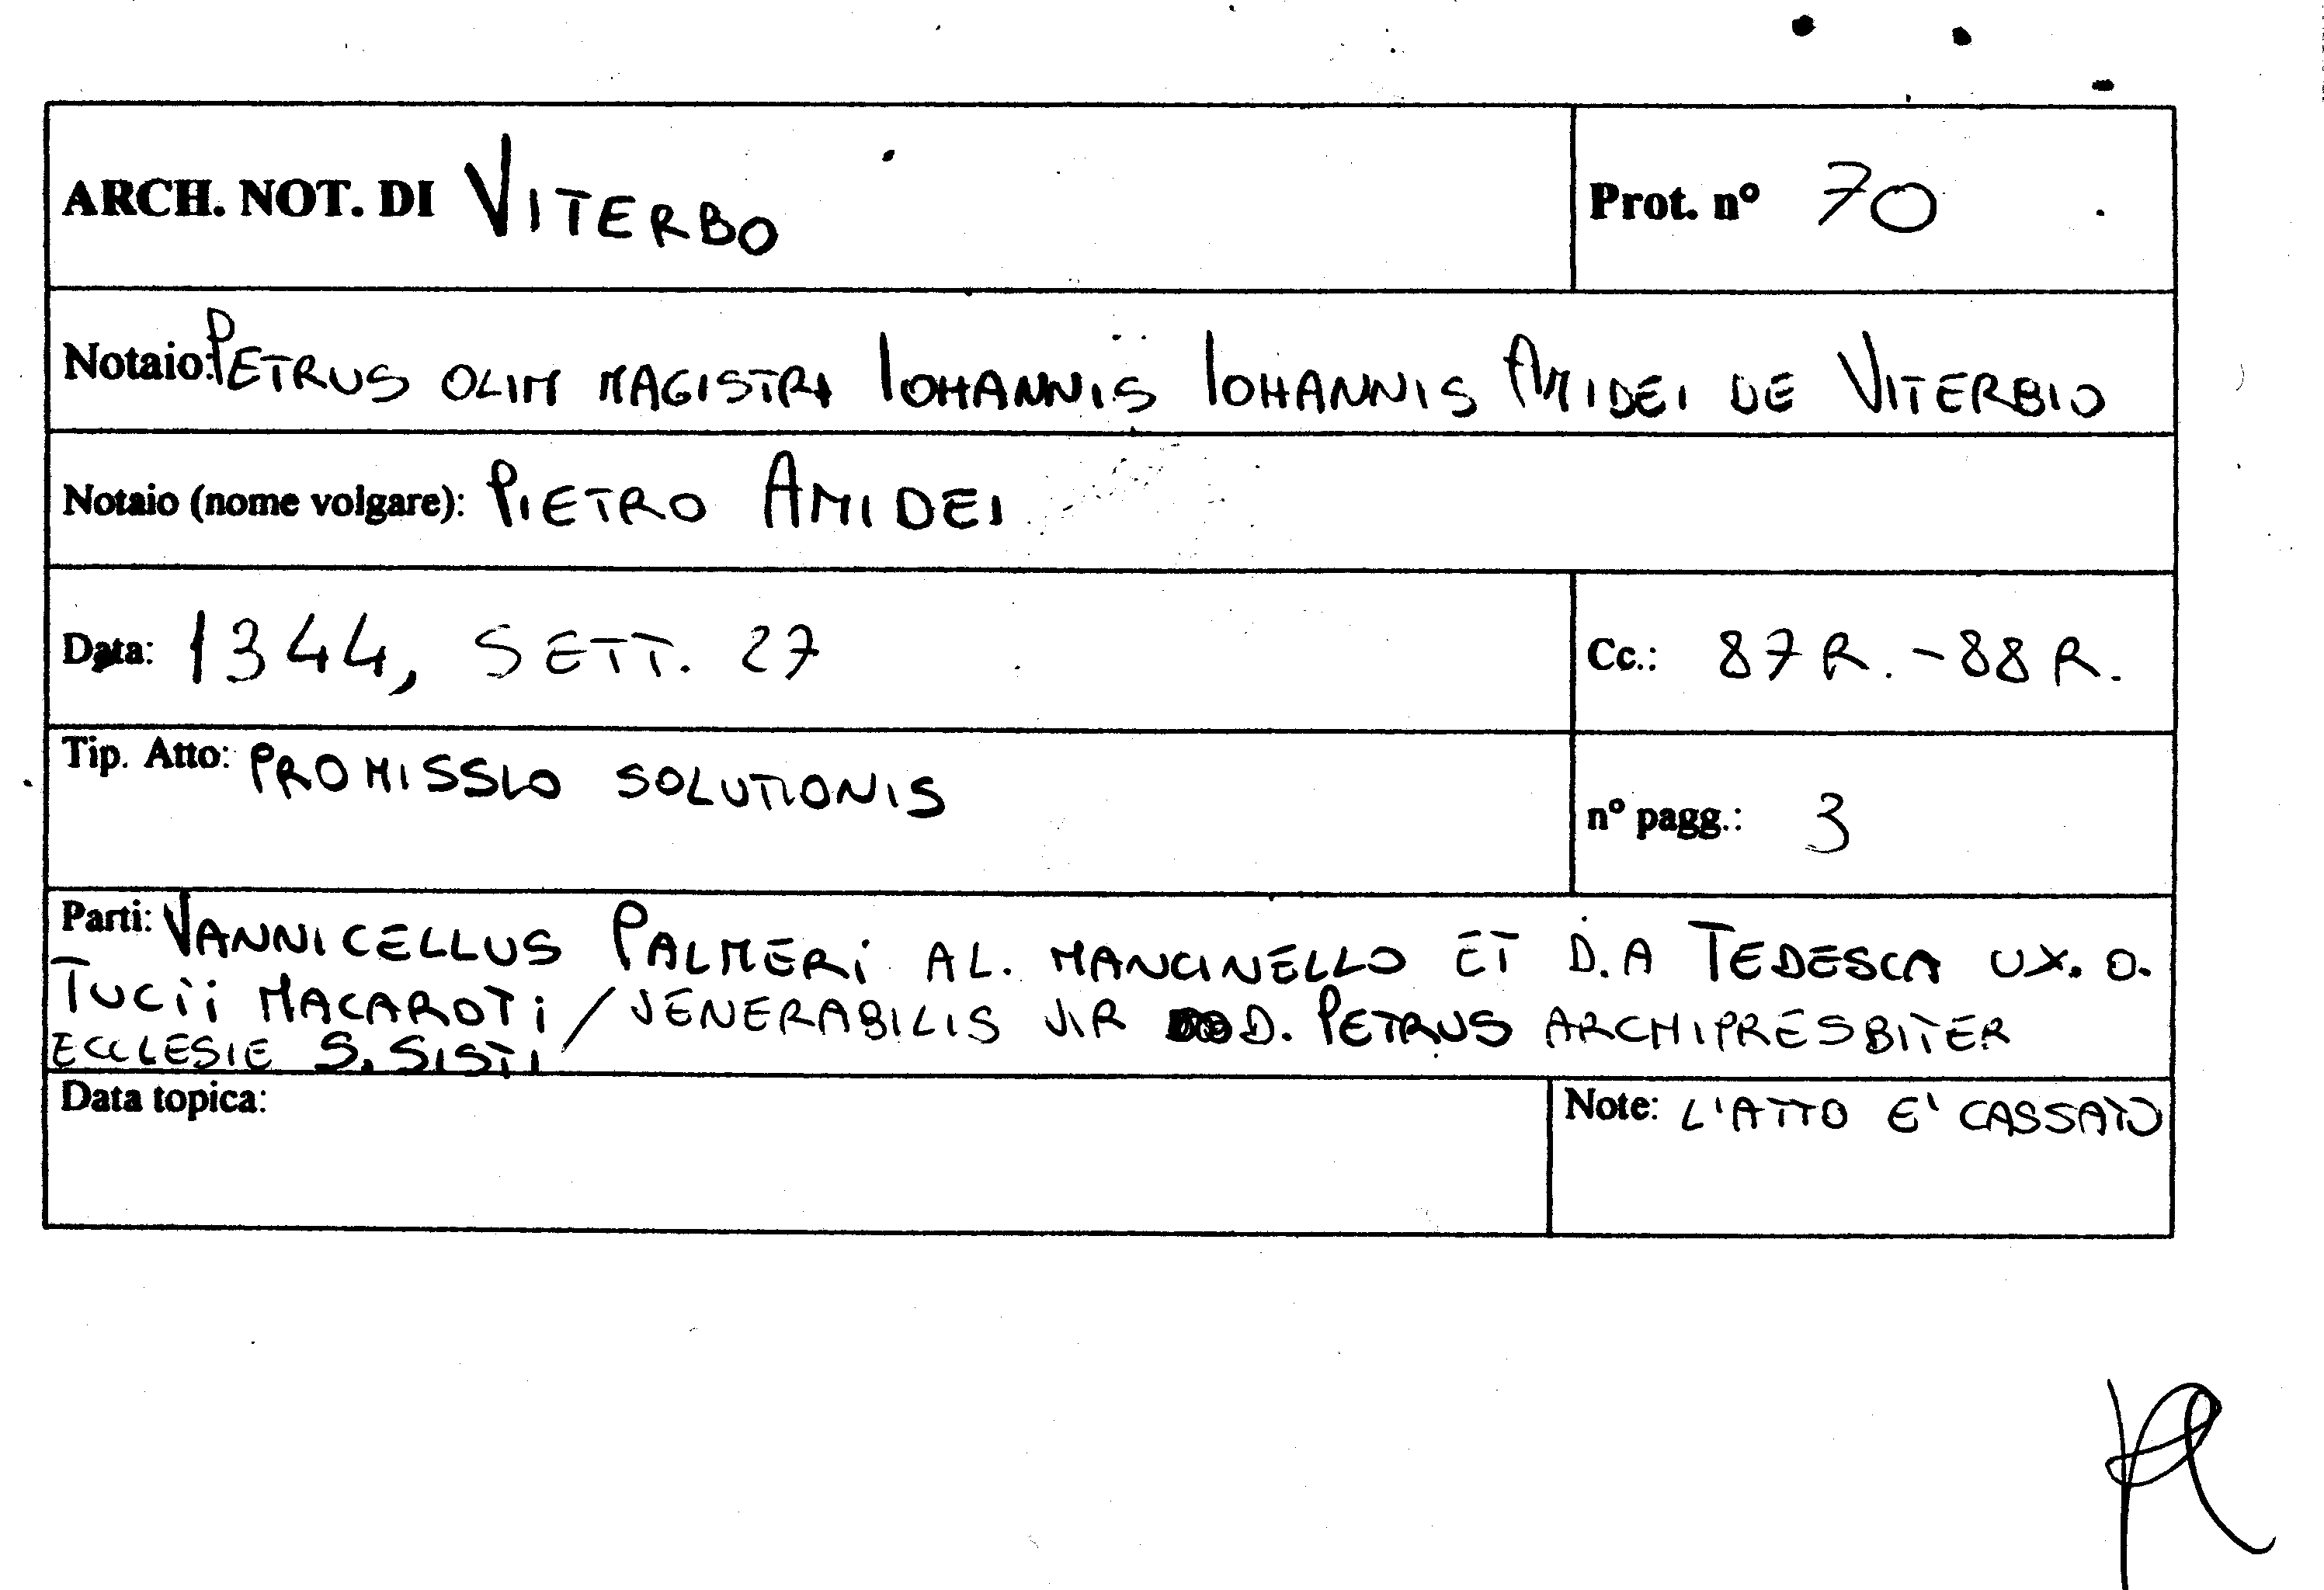 ARCH. NOT. DI VITERBO
Prot. n° 70
Notaio: PETRUS OLIM MAGISTRI IOHANNIS IOHANNIS AMIDEI DE VITERBIO
Notaio (nome volgare): PIETRO AMIDEI
Data: 1344, SETT. 27
Cc.: 87 R. - 88 R.
Tip. Atto: PROMISSIO SOLUTIONIS
n° pagg.: 3
Parti: VANNICELLUS PALMERI AL. MANCINELLO ET D.A TEDESCA UX. O.
TUCII MACAROTI / VENERABILIS VIR D. PETRUS ARCHIPRESBITER
ECCLESIE S. SISTI
Data topica:
Note: L'ATTO E' CASSATO